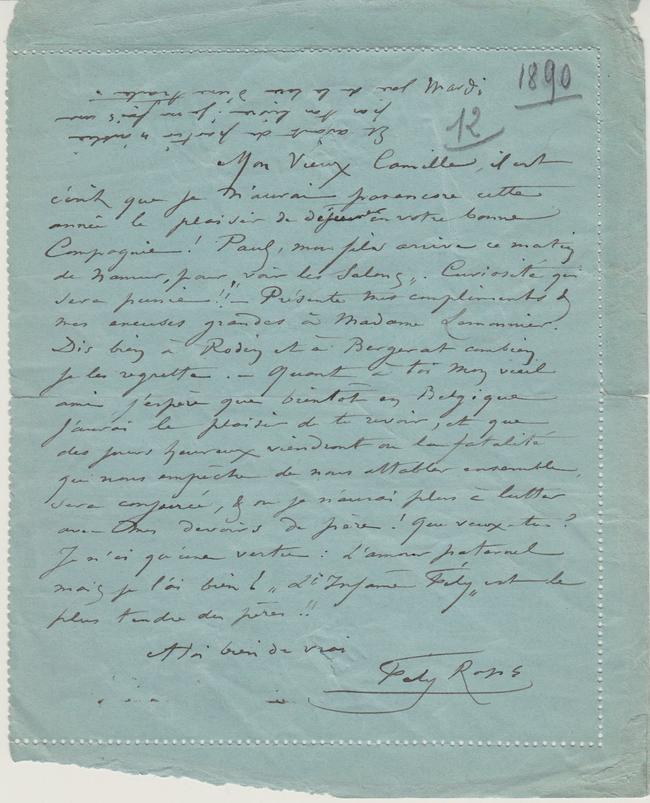 Mardi
1890
12
Et avant de partir n'oublie
pas ton livre ; je me fais une
de la d'une
Mon Vieux Camille, il est
écrit que je n'aurai pas encore cette
année le plaisir de déjeuner en votre bonne
Compagnie ! Paul, mon fils arrive ce matin
de Namur, pour „voir les Salons„. Curiosité qui
sera punie !! – Présente mes compliments &
mes excuses grandes à Madame Lemonnier.
Dis bien à Rodin et à Bergerat combien
je les regrette. – Quant à toi mon vieil
ami j'espère que bientôt en Belgique
j'aurai le plaisir de te revoir, et que
des jours heureux viendront où la fatalité
qui nous empêche de nous attabler ensemble,
sera conjurée, & où je n'aurai plus à lutter
avec mes devoirs de père ! Que veux-tu ?
Je n'ai qu'une vertu : L'amour paternel
mais je l'ai bien ! „L'Infâme Fély„ est le
plus tendre des pères !!
A toi bien de vrai
Fély Rops